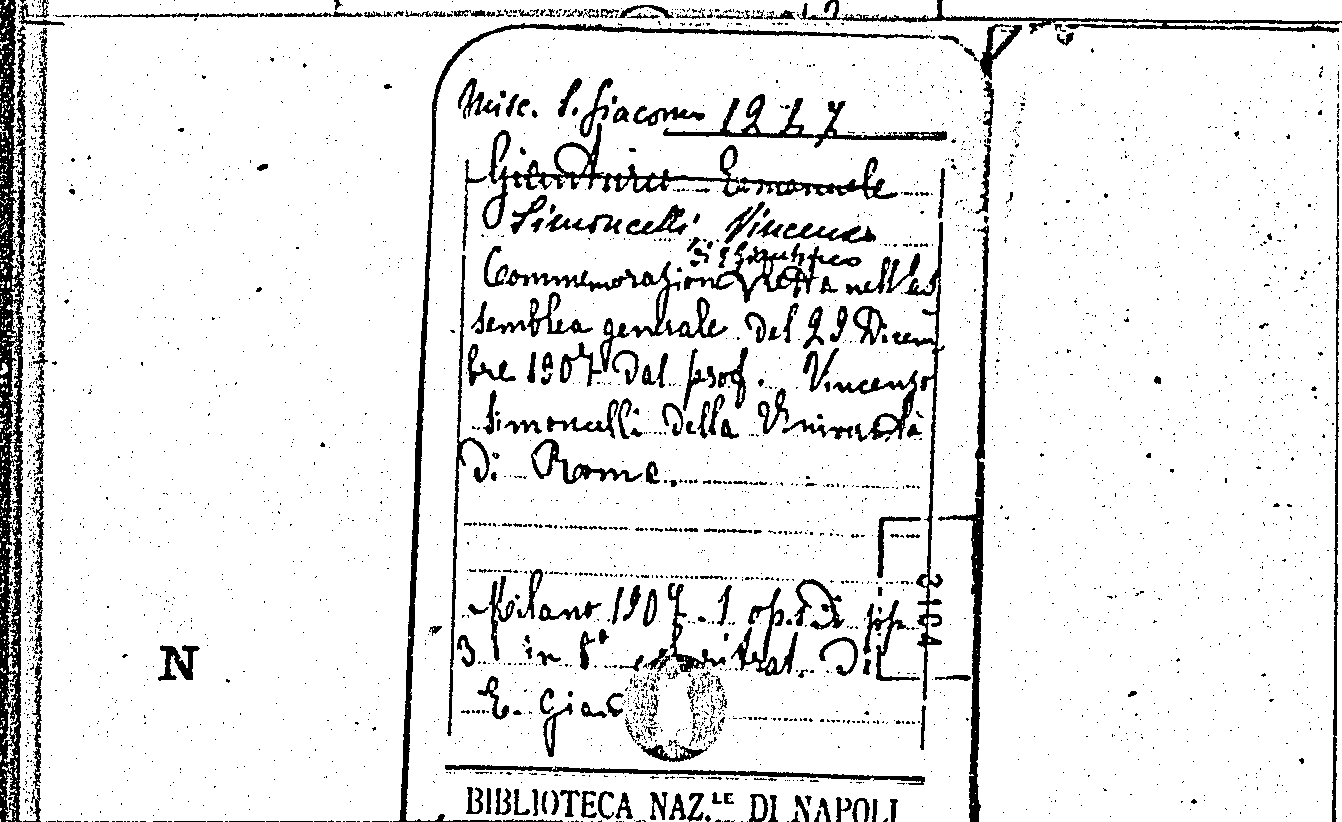 Misc. S. Giacomo 1217
Gianturco Emanuele
Simoncelli Vincenzo
di E. Gianturco
Commemorazione letta nell'as
semblea generale del 29 Dicem
bre 1907 dal prof. Vincenzo
Simoncelli della Università
di Roma.
Milano 1907. 1 op. di pp.
31 in 8° col ritrat. di
E. Gian
3104
N
BIBLIOTECA NAZ.LE DI NAPOLI